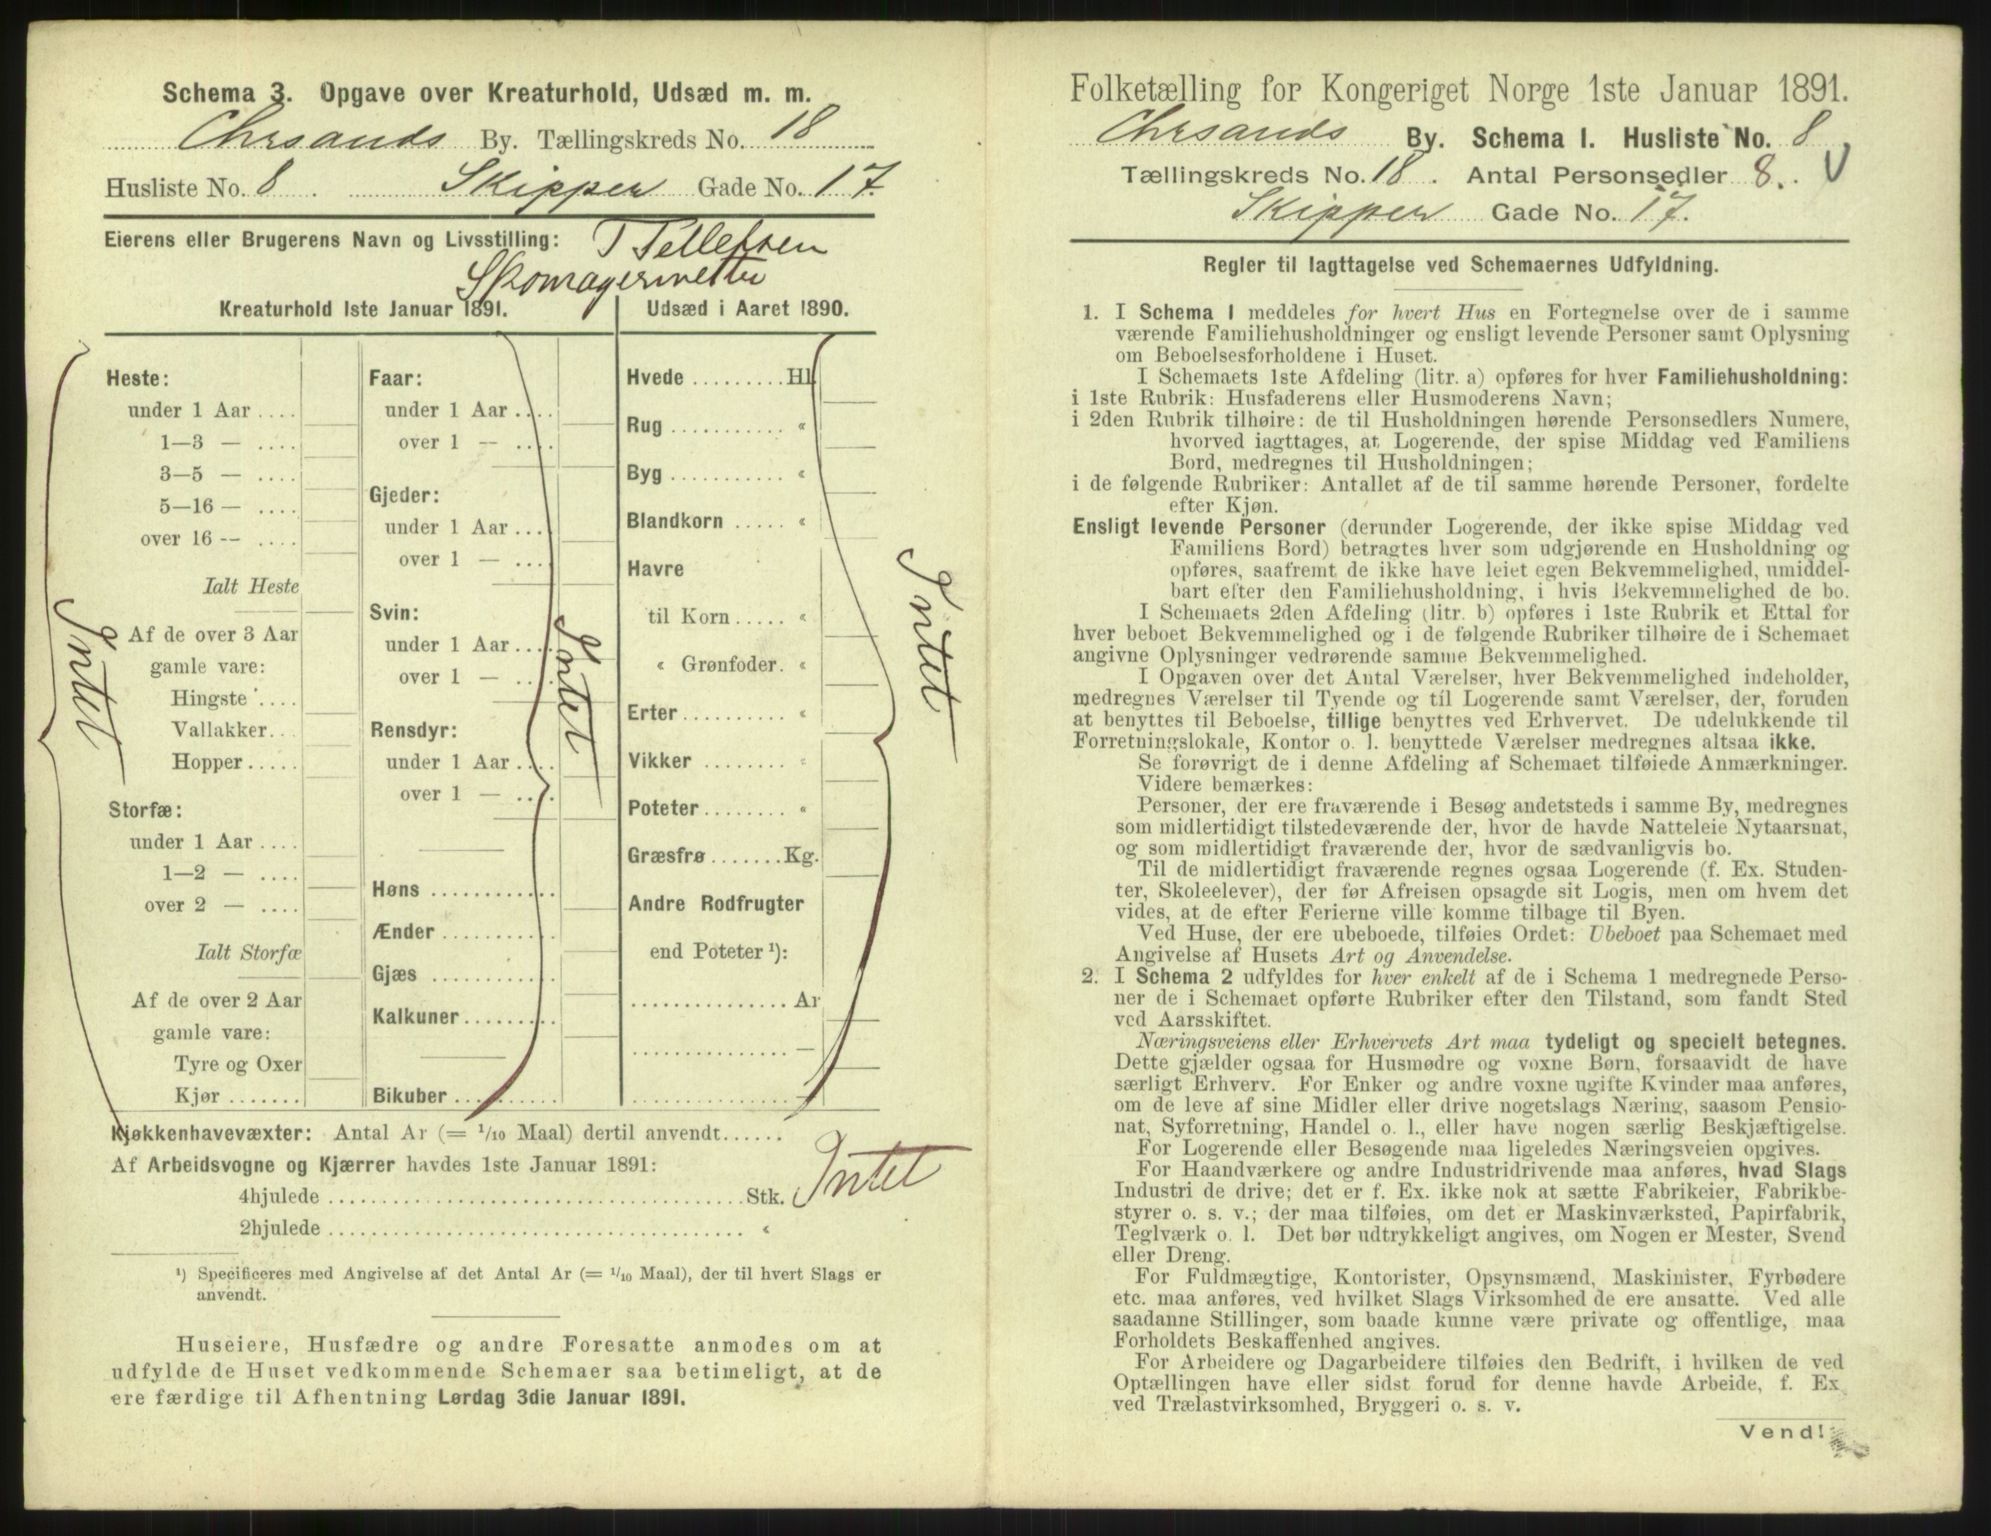 Schema 3. Opgave over Kreaturhold, Udsæd m. m.
Chrsands By. Tællingskreds No. 18
Husliste No. 8 . Skipper Gade No. 17.
Eierens eller Brugerens Navn og Livsstilling: T Tellefsen
Skomagermester
Kreaturhold 1ste Januar 1891.
Heste:
under 1 Aar ....
1—3 — ....
3—5 — ....
5—16 — ....
over 16 -- ....
Ialt Heste
Af de over 3 Aar
gamle vare:
Hingste ....
Vallakker...
Hopper .....
Storfæ:
under 1 Aar ....
1—2 — ....
over 2 — ....
Ialt Storfæ
Af de over 2 Aar
gamle vare:
Tyre og Oxer
Kjør .......
Intet
Faar:
under 1 Aar ....
over 1 — ....
Gjeder:
under 1 Aar ....
over 1 — ....
Svin:
under 1 Aar ....
over 1 — ....
Rensdyr:
under 1 Aar ....
over 1 — ....
Høns ............
Ænder ...........
Gjæs ............
Kalkuner.........
Bikuber ..........
Intet
Udsæd i Aaret 1890.
Hvede .........Hl.
Rug ........... «
Byg ........... «
Blandkorn ..... «
Havre
til Korn ..... «
« Grønfoder. «
Erter .......... «
Vikker ........ «
Poteter........ «
Græsfrø .......Kg.
Andre Rodfrugter
end Poteter ¹):
............... Ar
............... —
............... —
Intet
Kjøkkenhavevæxter: Antal Ar (= 1/10 Maal) dertil anvendt......
Af Arbeidsvogne og Kjærrer havdes 1ste Januar 1891:
4hjulede ........................................Stk. Intet
2hjulede ........................................ «
¹) Specificeres med Angivelse af det Antal Ar (= 1/10 Maal), der til hvert Slags er
anvendt.
Huseiere, Husfædre og andre Foresatte anmodes om at
udfylde de Huset vedkommende Schemaer saa betimeligt, at de
ere færdige til Afhentning Lørdag 3die Januar 1891.
Folketælling for Kongeriget Norge 1ste Januar 1891.
Chrsands By. Schema I. Husliste No. 8
Tællingskreds No. 18 . Antal Personsedler 8. . V
Skipper Gade No. 17.
Regler til Iagttagelse ved Schemaernes Udfyldning.
1. I Schema 1 meddeles for hvert Hus en Fortegnelse over de i samme
værende Familiehusholdninger og ensligt levende Personer samt Oplysning
om Beboelsesforholdene i Huset.
I Schemaets 1ste Afdeling (litr. a) opføres for hver Familiehusholdning:
i 1ste Rubrik: Husfaderens eller Husmoderens Navn;
i 2den Rubrik tilhøire: de til Husholdningen hørende Personsedlers Numere,
hvorved iagttages, at Logerende, der spise Middag ved Familiens
Bord, medregnes til Husholdningen;
i de følgende Rubriker: Antallet af de til samme hørende Personer, fordelte
efter Kjøn.
Ensligt levende Personer (derunder Logerende, der ikke spise Middag ved
Familiens Bord) betragtes hver som udgjørende en Husholdning og
opføres, saafremt de ikke have leiet egen Bekvemmelighed, umiddel-
bart efter den Familiehusholdning, i hvis Bekvemmelighed de bo.
I Schemaets 2den Afdeling (litr. b) opføres i 1ste Rubrik et Ettal for
hver beboet Bekvemmelighed og i de følgende Rubriker tilhøire de i Schemaet
angivne Oplysninger vedrørende samme Bekvemmelighed.
I Opgaven over det Antal Værelser, hver Bekvemmelighed indeholder,
medregnes Værelser til Tyende og til Logerende samt Værelser, der, foruden
at benyttes til Beboelse, tillige benyttes ved Erhvervet. De udelukkende til
Forretningslokale, Kontor o. l. benyttede Værelser medregnes altsaa ikke.
Se forøvrigt de i denne Afdeling af Schemaet tilføiede Anmærkninger.
Videre bemærkes:
Personer, der ere fraværende i Besøg andetsteds i samme By, medregnes
som midlertidigt tilstedeværende der, hvor de havde Natteleie Nytaarsnat,
og som midlertidigt fraværende der, hvor de sædvanligvis bo.
Til de midlertidigt fraværende regnes ogsaa Logerende (f. Ex. Studen-
ter, Skoleelever), der før Afreisen opsagde sit Logis, men om hvem det
vides, at de efter Ferierne ville komme tilbage til Byen.
Ved Huse, der ere ubeboede, tilføies Ordet: Ubeboet paa Schemaet med
Angivelse af Husets Art og Anvendelse.
2. I Schema 2 udfyldes for hver enkelt af de i Schema 1 medregnede Perso-
ner de i Schemaet opførte Rubriker efter den Tilstand, som fandt Sted
ved Aarsskiftet.
Næringsveiens eller Erhvervets Art maa tydeligt og specielt betegnes.
Dette gjælder ogsaa for Husmødre og voxne Børn, forsaavidt de have
særligt Erhverv. For Enker og andre voxne ugifte Kvinder maa anføres,
om de leve af sine Midler eller drive nogetslags Næring, saasom Pensio-
nat, Syforretning, Handel o. l., eller have nogen særlig Beskjæftigelse.
For Logerende eller Besøgende maa ligeledes Næringsveien opgives.
For Haandværkere og andre Industridrivende maa anføres, hvad Slags
Industri de drive; det er f. Ex. ikke nok at sætte Fabrikeier, Fabrikbe-
styrer o. s. v.; der maa tilføies, om det er Maskinværksted, Papirfabrik,
Teglværk o. l. Det bør udtrykkeligt angives, om Nogen er Mester, Svend
eller Dreng.
For Fuldmægtige, Kontorister, Opsynsmænd, Maskinister, Fyrbødere
etc. maa anføres, ved hvilket Slags Virksomhed de ere ansatte. Ved alle
saadanne Stillinger, som baade kunne være private og offentlige, maa
Forholdets Beskaffenhed angives.
For Arbeidere og Dagarbeidere tilføies den Bedrift, i hvilken de ved
Optællingen have eller sidst forud for denne havde Arbeide, f. Ex
ved Trælastvirksomhed, Bryggeri o. s. v.
Vend!